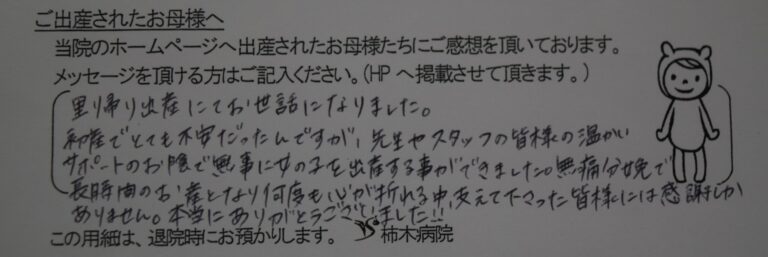 ご出産されたお母様へ
当院のホームページへ出産されたお母様たちにご感想を頂いております。
メッセージを頂ける方はご記入ください。(HPへ掲載させて頂きます。)
里り帰り出産にてお世話になりました。
初産でとても不安だったんですが、先生やスタッフの皆様の温かい
サポートのお陰で無事に女の子を出産する事ができました。無痛分娩で
長時間のお産となり何度も心が折れる中、支えて下さった皆様には感謝しか
ありません。本当にありがとうございました!!
この用紙は、退院時にお預かりします。 柿木病院